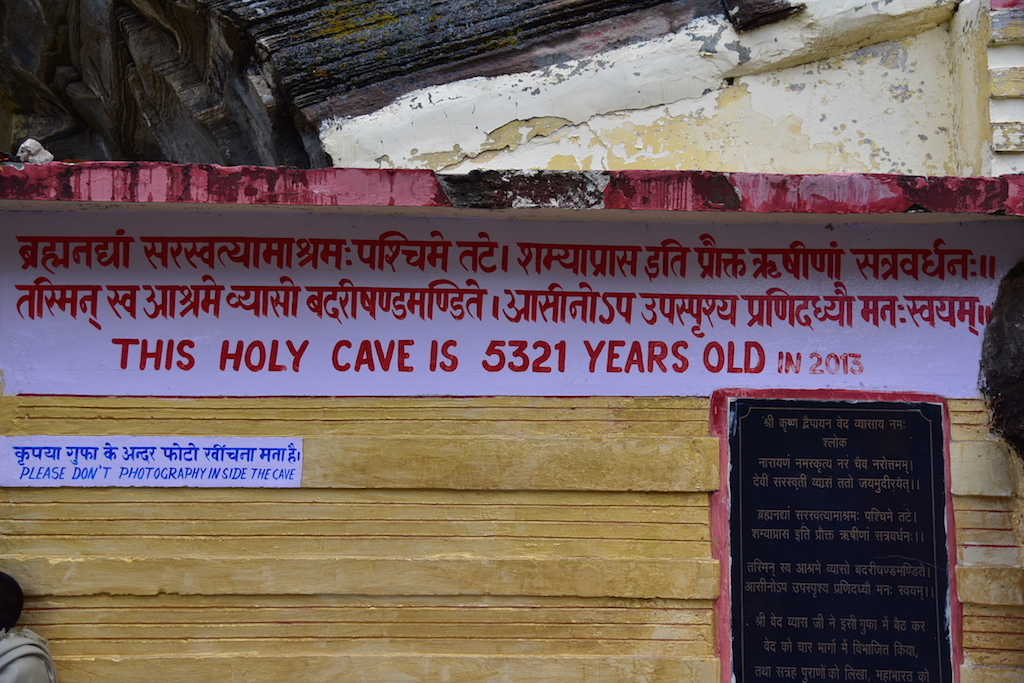 ब्रह्मनद्यां सरस्वत्यामाश्रमः पश्चिमे तटे। शम्याप्रास इति प्रौक्त ऋषीणां सत्रवर्धनः॥
तस्मिन् स्व आश्रमे व्यासो बदरीषण्डमण्डिते।आसीनोऽप उपस्पृश्य प्रणिदध्यौ मनःस्वयम्॥
THIS HOLY CAVE IS 5321 YEARS OLD IN 2013
कृपया गुफा के अन्दर फोटो खींचना मना है।
PLEASE DON'T PHOTOGRAPHY INSIDE THE CAVE
श्री कृष्ण द्वैपायन वेद व्यासाय नमः
श्लोक
नारायणं नमस्कृत्य नरं चैव नरोत्तमम्।
देवीं सरस्वतीं व्यासं ततो जयमुदीरयेत्।।
ब्रह्मनद्यां सरस्वत्यामाश्रमः पश्चिमे तटे।
शम्याप्रास इति प्रौक्त ऋषीणां सत्रवर्धनः।।
तस्मिन् स्व आश्रमे व्यासो बदरीषण्डमण्डिते।
आसीनोऽप उपस्पृश्य प्रणिदध्यौ मनः स्वयम्।।
श्री वेद व्यास जी ने इसी गुफा में बैठ कर
वेद को चार भागों में विभाजित किया,
तथा सत्रह पुराणों को लिखा, महाभारत को